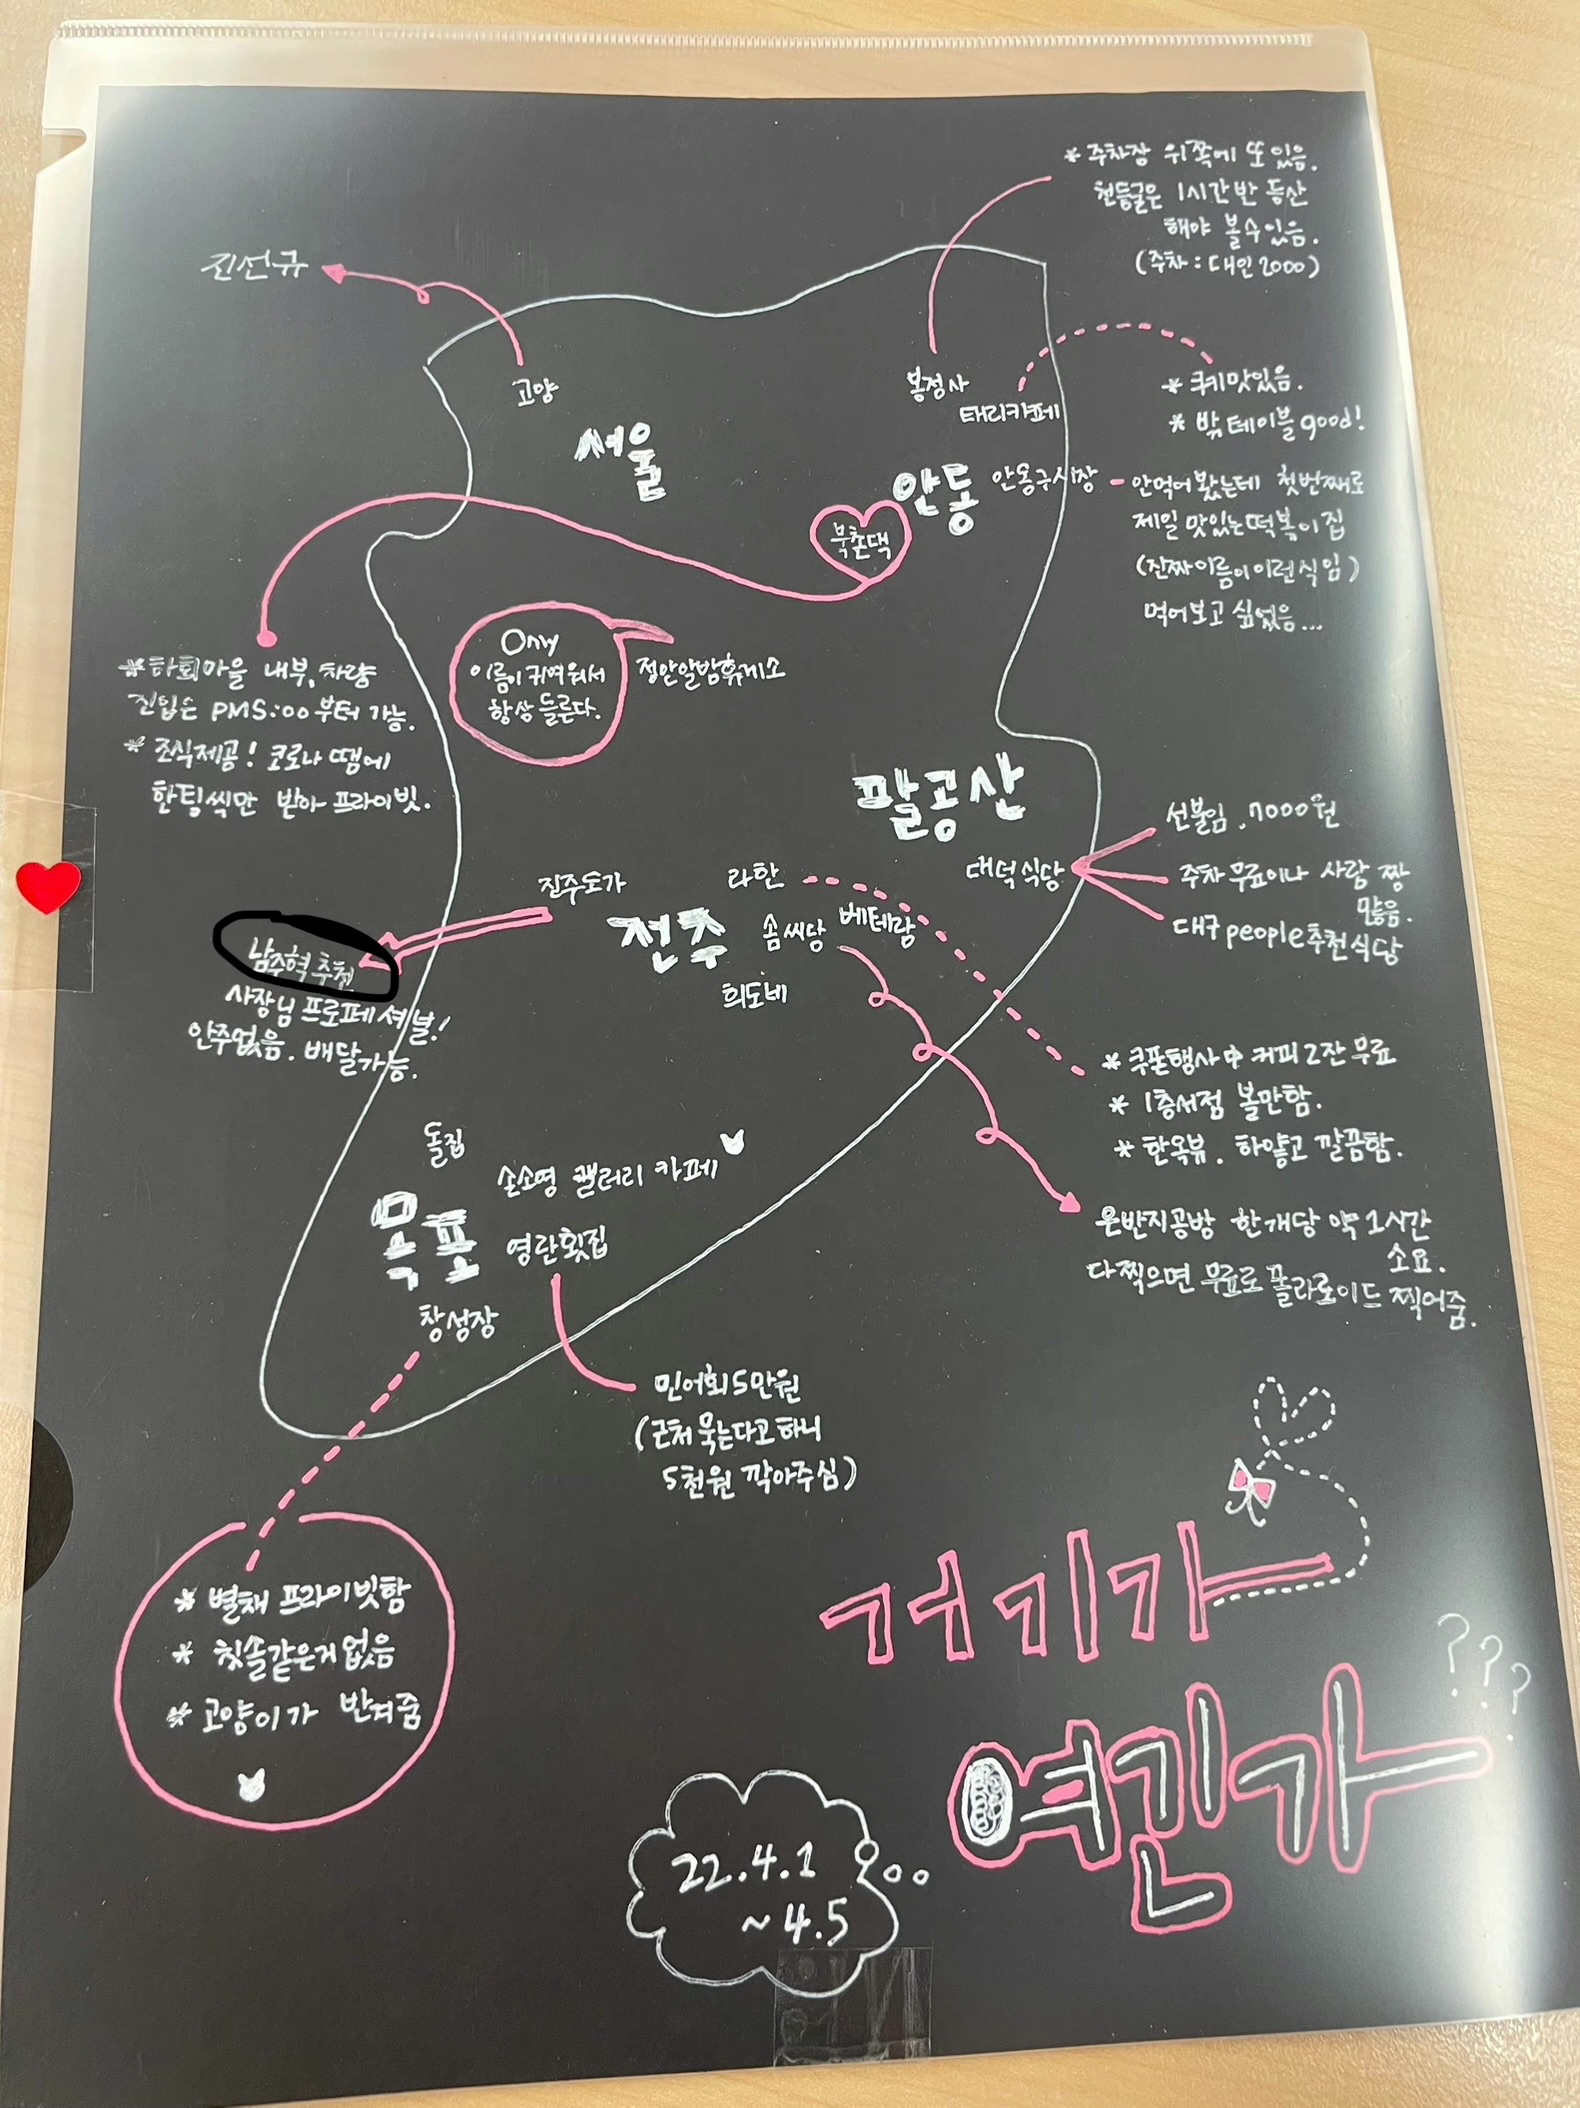 * 주차장 위쪽에 또 있음.
천등굴은 1시간 반 등산
해야 볼 수 있음.
(주차 : 대인 2000)
진선규
고양
서울
봉정사
태리카페
* 쿠키맛있음.
* 밖 테이블 good!
안동
안동구시장
안먹어 봤는데 첫번째로
제일 맛있는 떡볶이집
(진짜이름이 이런식임)
먹어보고 싶었음...
북촌댁
Only
이름이 귀여워서
항상 들른다.
정안알밤휴게소
* 하회마을 내부, 차량
진입은 PM5:00부터 가능.
* 조식제공! 코로나 땜에
한팀씩만 받아 프라이빗.
팔공산
대덕식당
선불임. 7000원
주차 무료이나 사람 짱
많음.
대구people추천식당
전주도가
전주
라한
솜씨당
베테랑
희도베
남주혁 추천
사장님 프로페셔널!
안주없음. 배달가능.
* 쿠폰행사中 커피 2잔 무료
* 1층서점 볼만함.
* 한옥뷰. 하얗고 깔끔함.
은반지공방 한개당 약 1시간
소요.
다찍으면 무료로 폴라로이드 찍어줌.
돌집
목포
손소영 갤러리 카페
영란횟집
창성장
민어회5만원
(근처 묵는다고하니
5천원 깍아주심)
* 별채 프라이빗함
* 칫솔같은거없음
* 고양이가 반겨줌
거기가
여긴가
???
22.4.1
~4.5